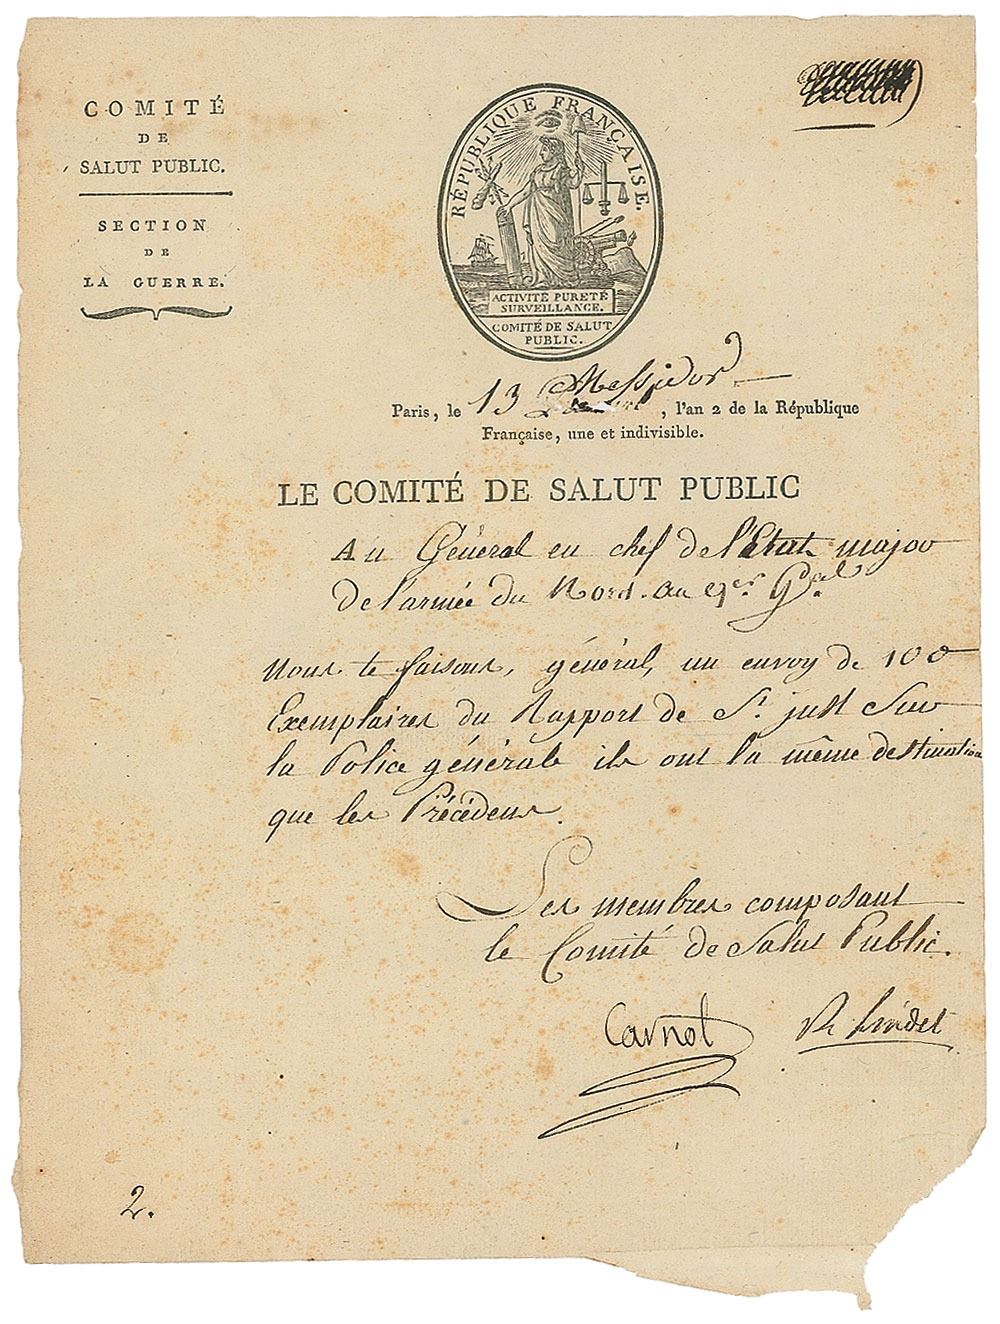 COMITÉ
DE
SALUT PUBLIC.
SECTION
DE
LA GUERRE.
RÉPUBLIQUE FRANÇAISE.
ACTIVITÉ PURETÉ
SURVEILLANCE.
COMITÉ DE SALUT
PUBLIC.
Paris, le 13 Messidor, l'an 2 de la République
Française, une et indivisible.
LE COMITÉ DE SALUT PUBLIC
Au Général en chef de l'Etat major
de l'armée du Nord. au
Nous te faisons, général, un envoy de 100
Exemplaires du Rapport de St. just Sur
la Police générale ils ont la même destination
que les Précédens.
Les membres composant
le Comité de Salut Public.
Carnot R Lindet
2.